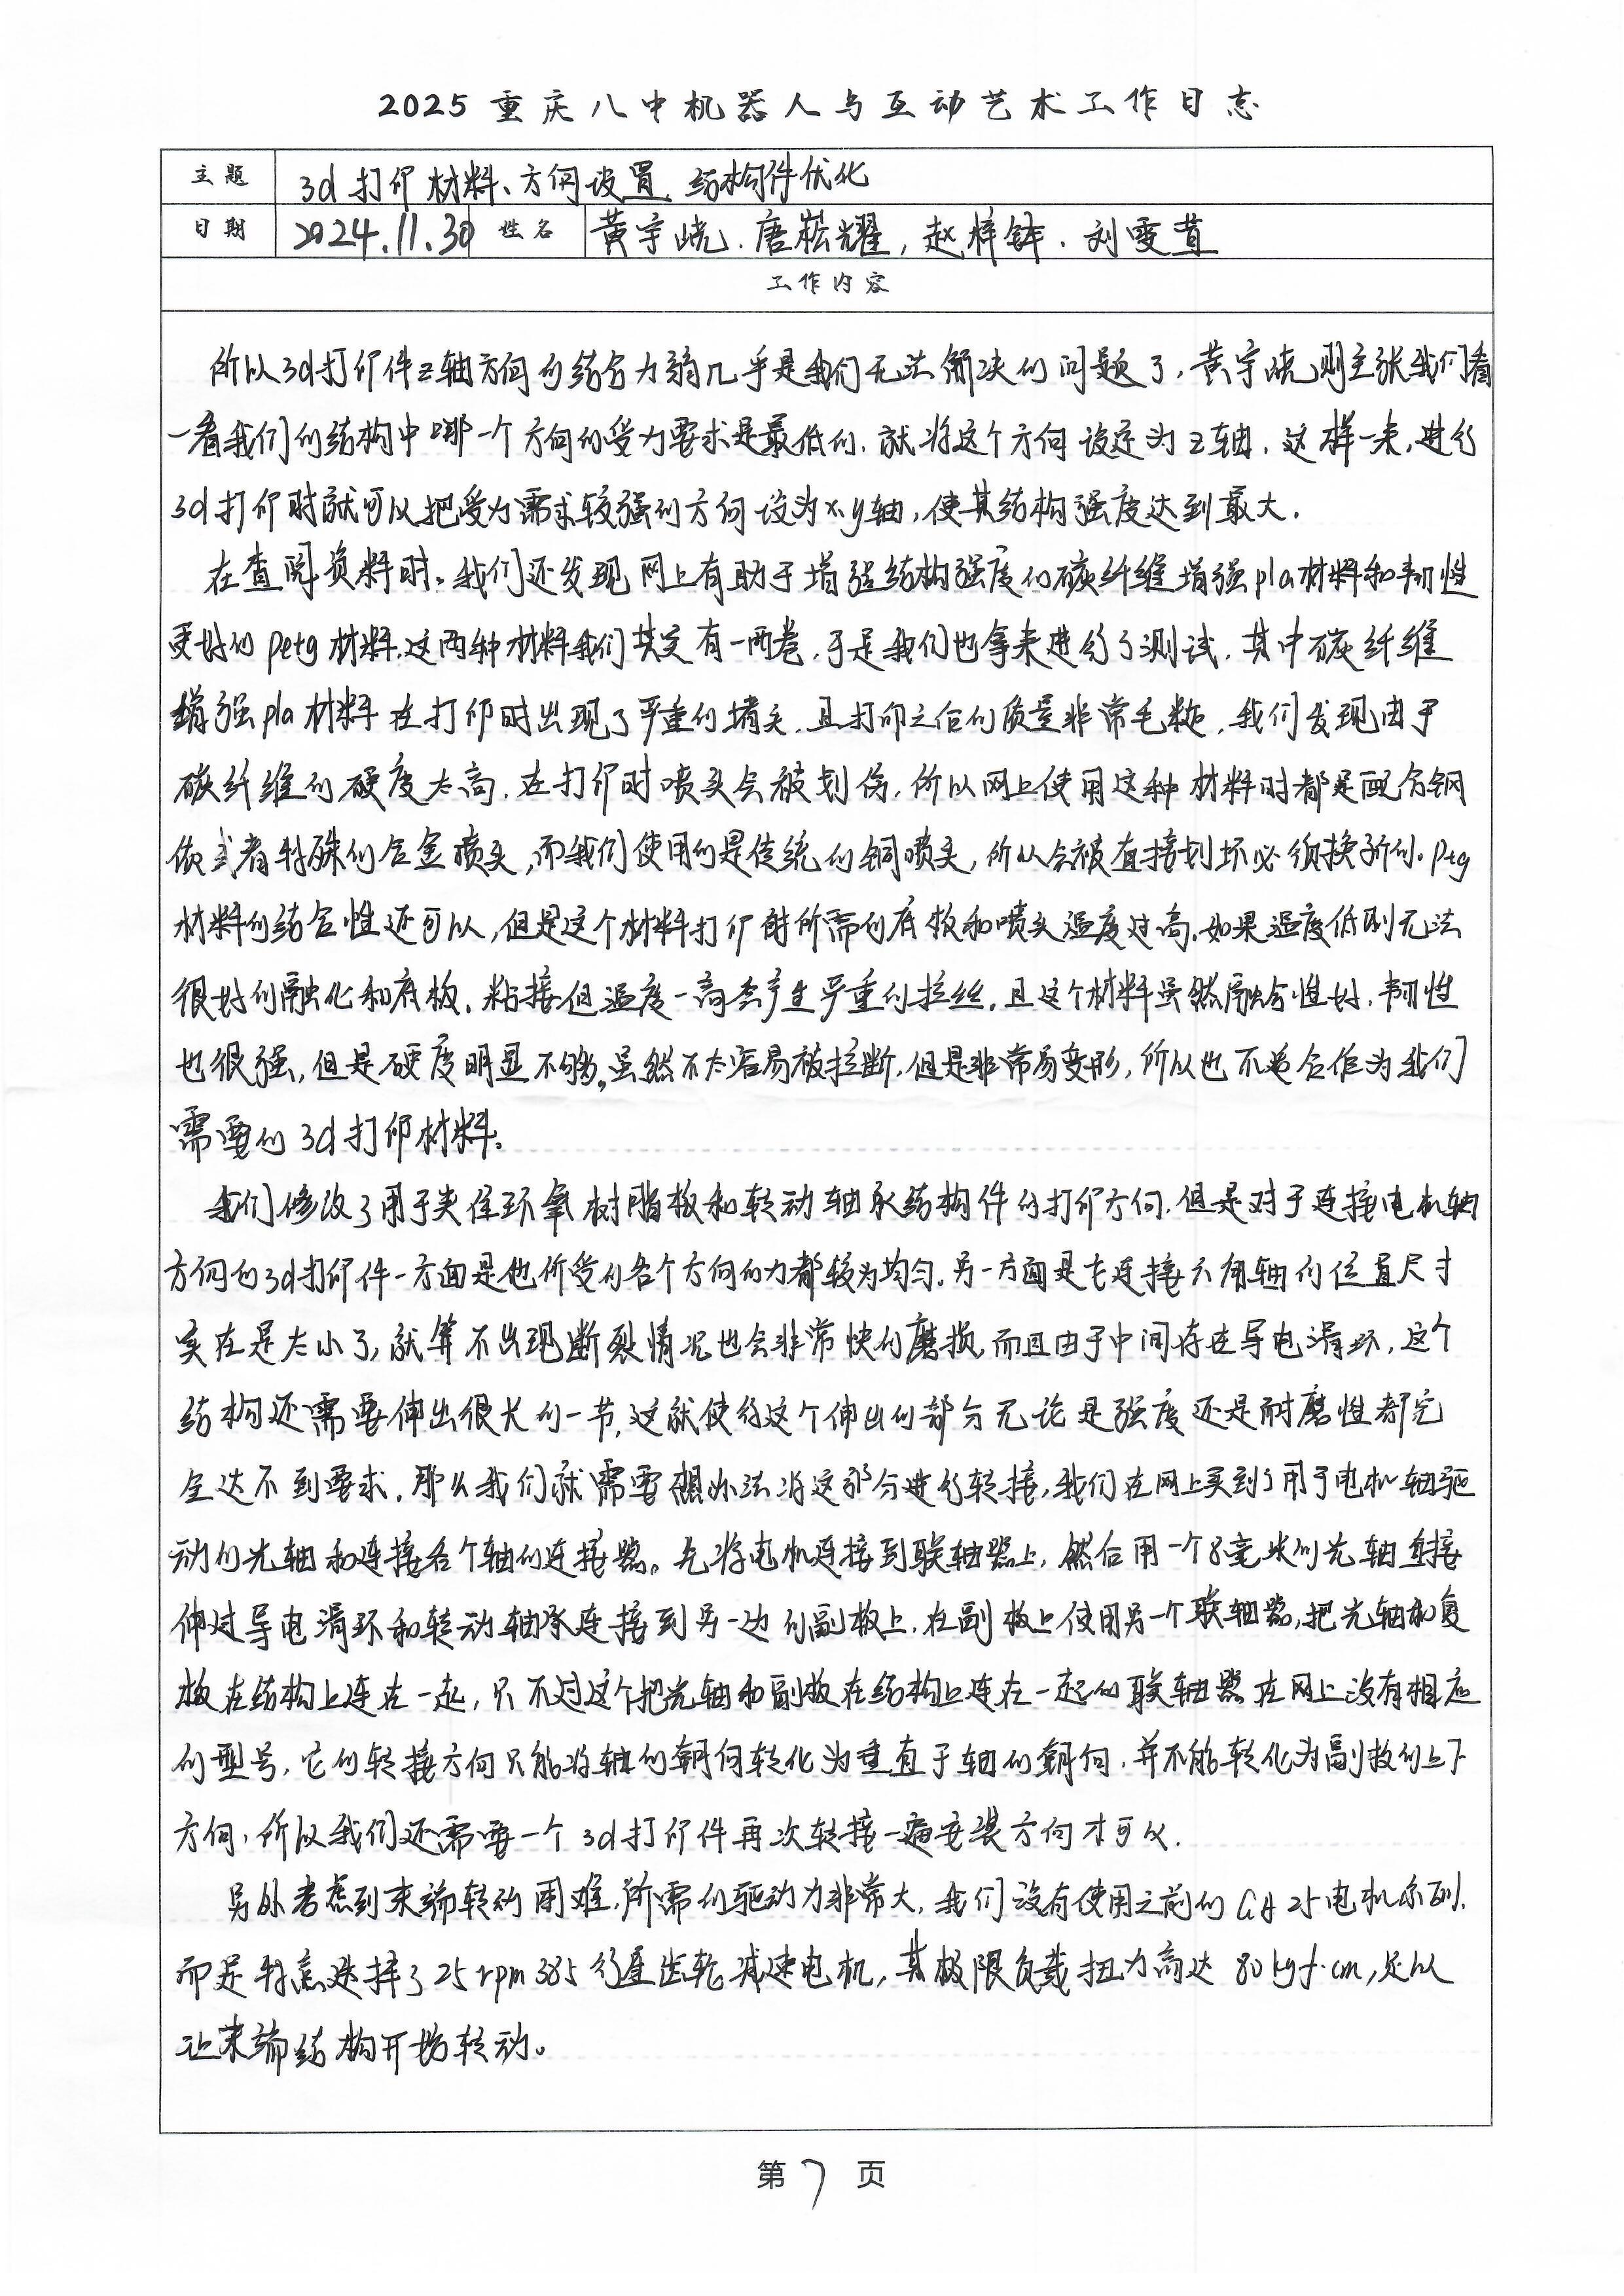 2025重庆八中机器人与互动艺术工作日志
主题 3d打印材料、方向设置、结构件优化
日期 2024.11.30 姓名 黄宇峣.唐崧耀,赵梓铧.刘雯萱
工作内容
所以3d打印件z轴方向的结合力弱几乎是我们无法解决的问题了,黄宇峣则主张我们看
一看我们的结构中哪一个方向的受力要求是最低的,就将这个方向设定为z轴,这样一来,进行
3d打印时就可以把受力需求较强的方向设为x、y轴,使其结构强度达到最大.
在查阅资料时。我们还发现网上有助于增强结构强度的碳纤维增强pla材料和韧性
更好的petg材料,这两种材料我们其实有一两卷,于是我们也拿来进行了测试,其中碳纤维
增强pla材料在打印时出现了严重的堵头,且打印之后的质量非常毛糙,我们发现由于
碳纤维的硬度太高,在打印时喷头会被划伤,所以网上使用这种材料时都是配合钢
做或者特殊的合金喷头,而我们使用的是传统的铜喷头,所以会被直接划坏必须换新的。Petg
材料的结合性还可以,但是这个材料打印时所需的底板和喷头温度过高,如果温度低则无法
很好的融化和底板,粘接但温度一高会产生严重的拉丝,且这个材料虽然融合性好,韧性
也很强,但是硬度明显不够。虽然不太容易被拉断,但是非常易变形,所以也不适合作为我们
需要的3d打印材料.
我们修改了用于夹住环氧树脂板和转动轴承结构件的打印方向,但是对于连接电机轴
方向的3d打印件一方面是他所受的各个方向的力都较为均匀.另一方面是它连接六角轴的位置尺寸
实在是太小了,就算不出现断裂情况也会非常快的磨损,而且由于中间存在导电滑环,这个
结构还需要伸出很长的一节,这就使得这个伸出的部分无论是强度还是耐磨性都完
全达不到要求.那么我们就需要想办法将这部分进行转接,我们在网上买到了用于电机轴驱
动的光轴和连接各个轴的连接器。先将电机连接到联轴器上,然后用一个8毫米的光轴直接
伸过导电滑环和转动轴承连接到另一边的副板上,在副板上使用另一个联轴器,把光轴和复
板在结构上连在一起,只不过这个把光轴和副板在结构上连在一起的联轴器在网上没有相应
的型号,它的转接方向只能将轴的朝向转化为垂直于轴的朝向,并不能转化为副板的上下
方向,所以我们还需要一个3d打印件再次转接一遍安装方向才可以.
另外考虑到末端转动困难,所需的驱动力非常大,我们没有使用之前的GA25电机系列,
而是特意选择了25rpm385行星齿轮减速电机,其极限负载扭力高达80kgf·cm,足以
让末端结构开始转动。
第7页